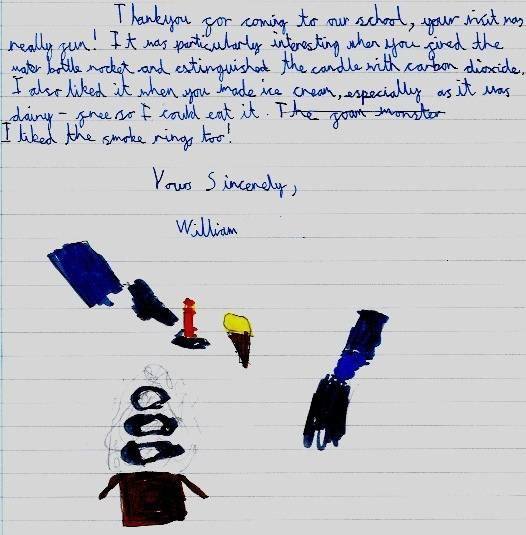 Thankyou for coming to our school, your visit was
really fun! It was particularly interesting when you fired the
water bottle rocket and extinguished the candle with carbon dioxide.
I also liked it when you made ice cream, especially as it was
dairy-free so I could eat it. The foam monster
I liked the smoke rings too!
Yours Sincerely,
William